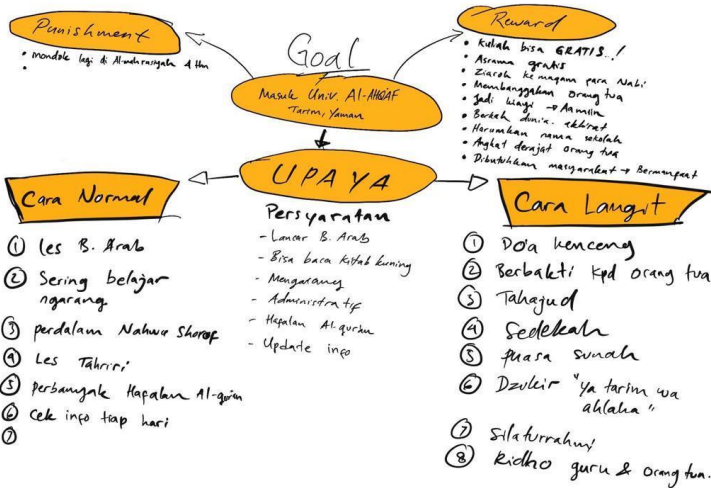 Punishment
• mondok lagi di Al-madrasiyah 4 thn
•
Goal
Masuk Univ. Al-AHQAF
Tarim, Yaman
Reward
• Kuliah bisa GRATIS..!
• Asrama gratis
• Ziaroh ke maqam para Nabi
• Membanggakan orang tua
• Jadi kiayi → Aamiin
• Berkah dunia. akhirat
• Harumkan nama sekolah
• Angkat derajat orang tua
• Dibutuhkan masyarakat → Bermanfaat
UPAYA
Persyaratan
- Lancar B. Arab
- Bisa baca kitab kuning
- Mengarang
- Administratif
- Hafalan Al-qur'an
- Update info
Cara Normal
① Les B. Arab
② Sering belajar
ngarang
③ perdalam Nahwu Shorof
④ Les Tahriri
⑤ perbanyak Hafalan Al-qur'an
⑥ Cek info tiap hari
⑦
Cara Langit
① Do'a kenceng
② Berbakti kpd orang tua
③ Tahajud
④ Sedekah
⑤ puasa sunah
⑥ Dzikir "Ya tarim wa
ahlaha"
⑦ Silaturrahmi
⑧ Ridho guru & orang tua.